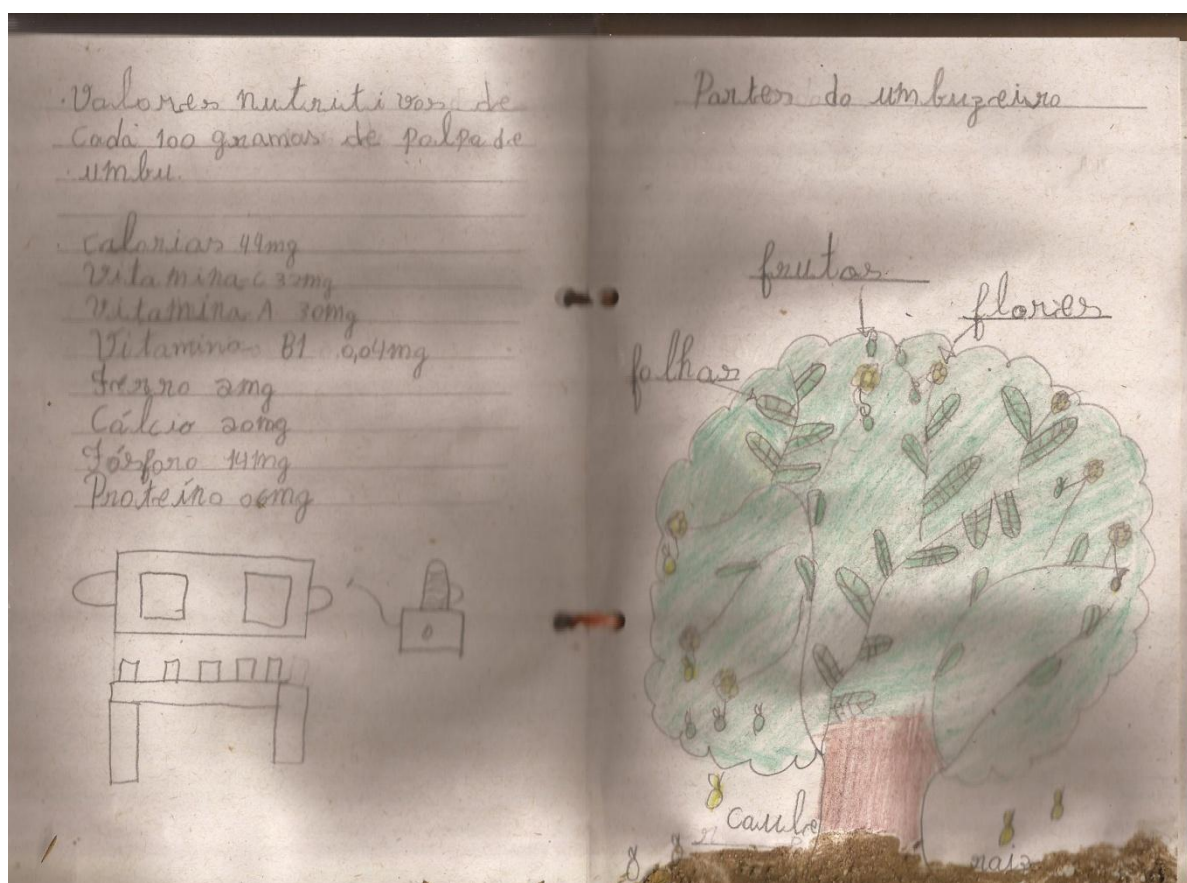 Valores nutritivos de
Cada 100 gramas de polpa de
umbu.
Calorias 44mg
Vitamina C 32mg
Vitamina A 30mg
Vitamina B1 0,04mg
Ferro 2mg
Cálcio 20mg
Fósforo 14mg
Proteíno 06mg
Partes do umbuzeiro
frutos
flores
folhas
caule
raiz